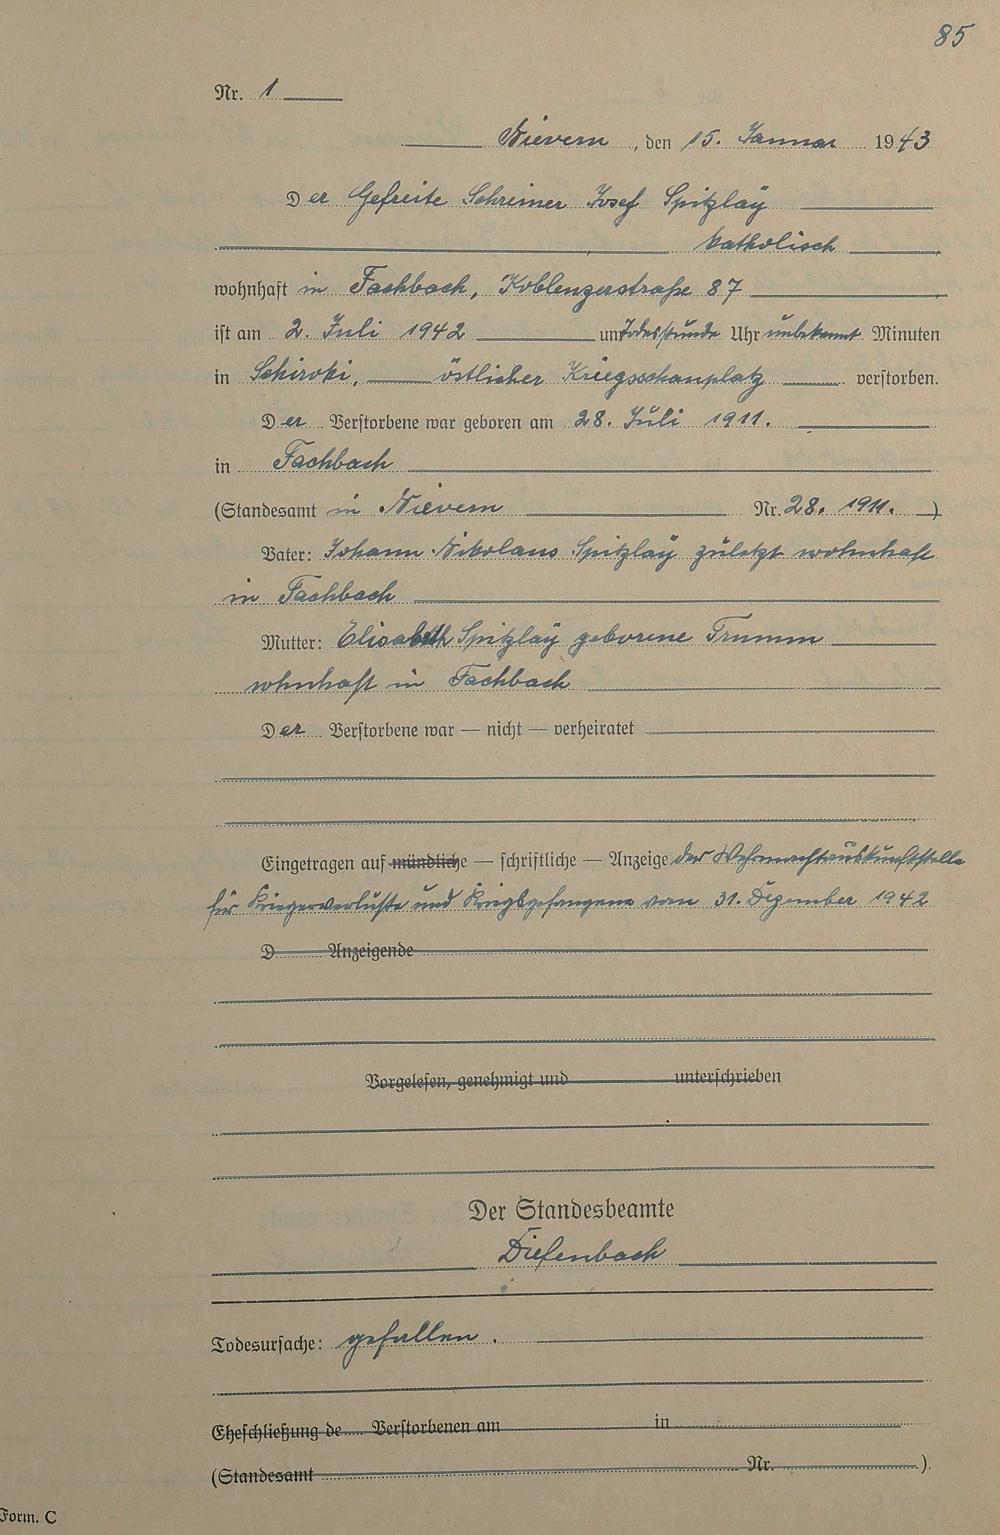 85
Nr. 1
Nievern, den 15. Januar 1943
Der Gefreite Schreiner Josef Spitzlaÿ
katholisch
wohnhaft in Fachbach, Koblenzerstraße 87
ist am 2. Juli 1942 um Todesstunde Uhr unbekannt Minuten
in Schiroki, östlicher Kriegsschauplatz verstorben.
Der Verstorbene war geboren am 28. Juli 1911.
in Fachbach
(Standesamt in Nievern Nr. 28. 1911. )
Vater: Johann Nikolaus Spitzlaÿ zuletzt wohnhaft
in Fachbach
Mutter: Elisabeth Spitzlaÿ geborene Trumm
wohnhaft in Fachbach
Der Verstorbene war — nicht — verheiratet
Eingetragen auf mündliche — schriftliche — Anzeige der Wehrmachtauskunftstelle
für Kriegerverluste und Kriegsgefangene vom 31. Dezember 1942
D Anzeigende
Vorgelesen, genehmigt und unterschrieben
Der Standesbeamte
Diefenbach
Todesursache: gefallen.
Eheschließung de Verstorbenen am in
(Standesamt Nr. ).
Form. C